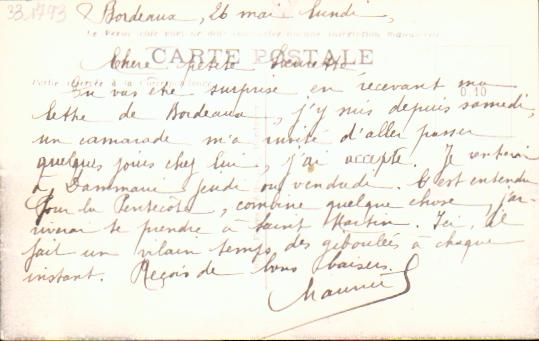 33.1793
Bordeaux, 26 mai lundi,
CARTE POSTALE
Chère petite
Tu vas être surprise en recevant ma
lettre de Bordeaux, j'y suis depuis samedi,
un camarade m'a invité d'aller passer
quelques jours chez lui, j'ai accepté. Je rentrerai
0.10
à Dammarie jeudi ou vendredi. C'est entendu
pour la Pentecôte, combine quelque chose, j'ar-
riverai te prendre à Saint Martin. Ici, il
fait un vilain temps, des giboulées à chaque
instant. Reçois de bons baisers.
Maurice